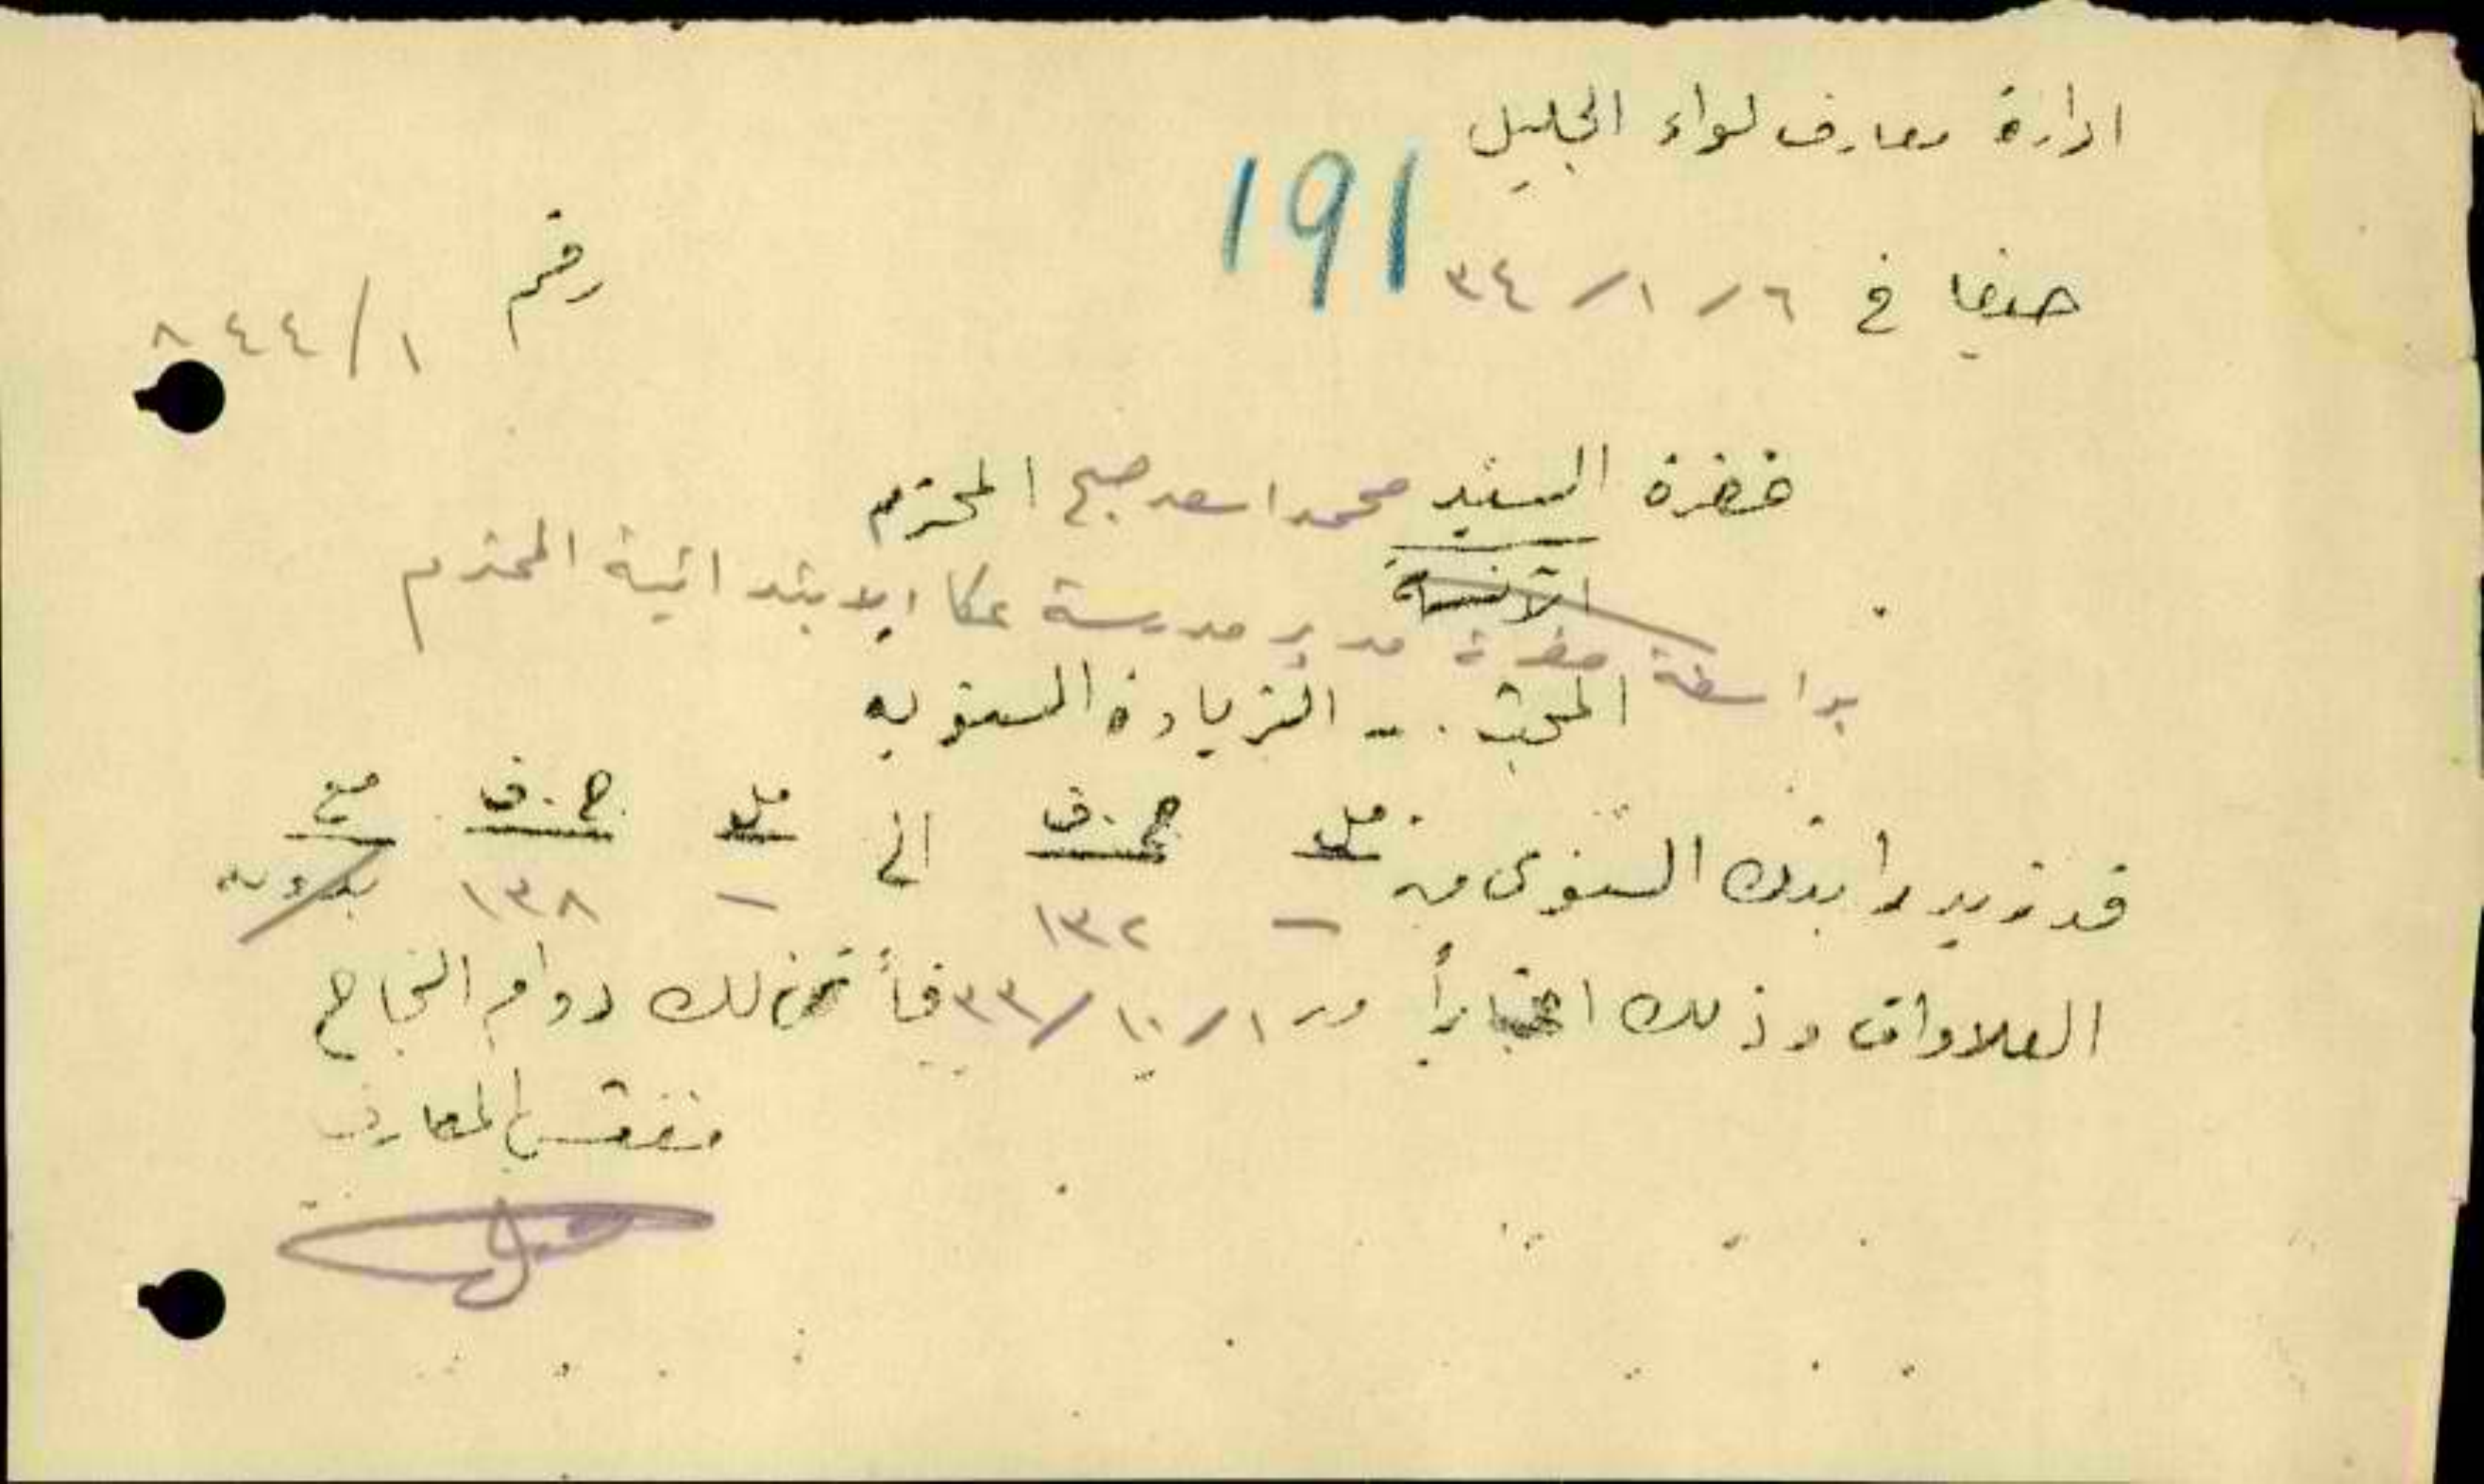 ادارة معارف لواء الجليل
191
حيفا في ٦/١/٣٤
رقم ٨٤٤/١
حضرة السيد محمد اسعد صبح المحترم
الآنسة
بواسطة حضرة مدير مدرسة عكا الابتدائية المحترم
المبحث .. الزيادة السنوية
قد زيد راتبك السنوي من مل - ج.ف ١٣٢ الى مل - ج.ف ١٣٨ مع بدون
العلاوات وذلك اعتباراً من ١/١٠/٣٣ فأتمنى لك دوام النجاح
مفتش المعارف